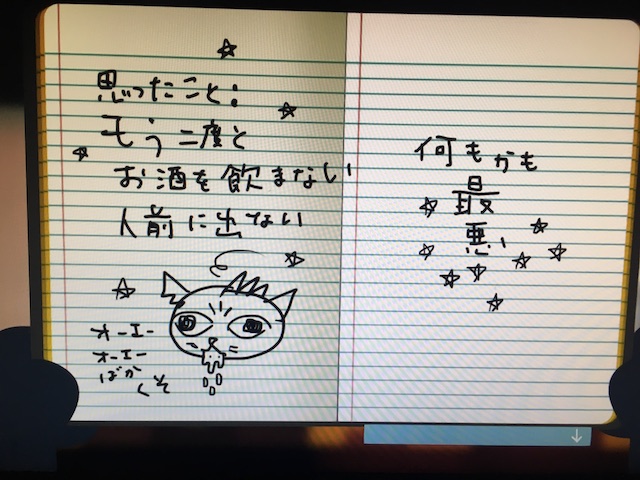 思ったこと:
もう二度と
お酒を飲まない
人前に出ない
オーエー
オーエー
ばか
くそ
何もかも
最
悪